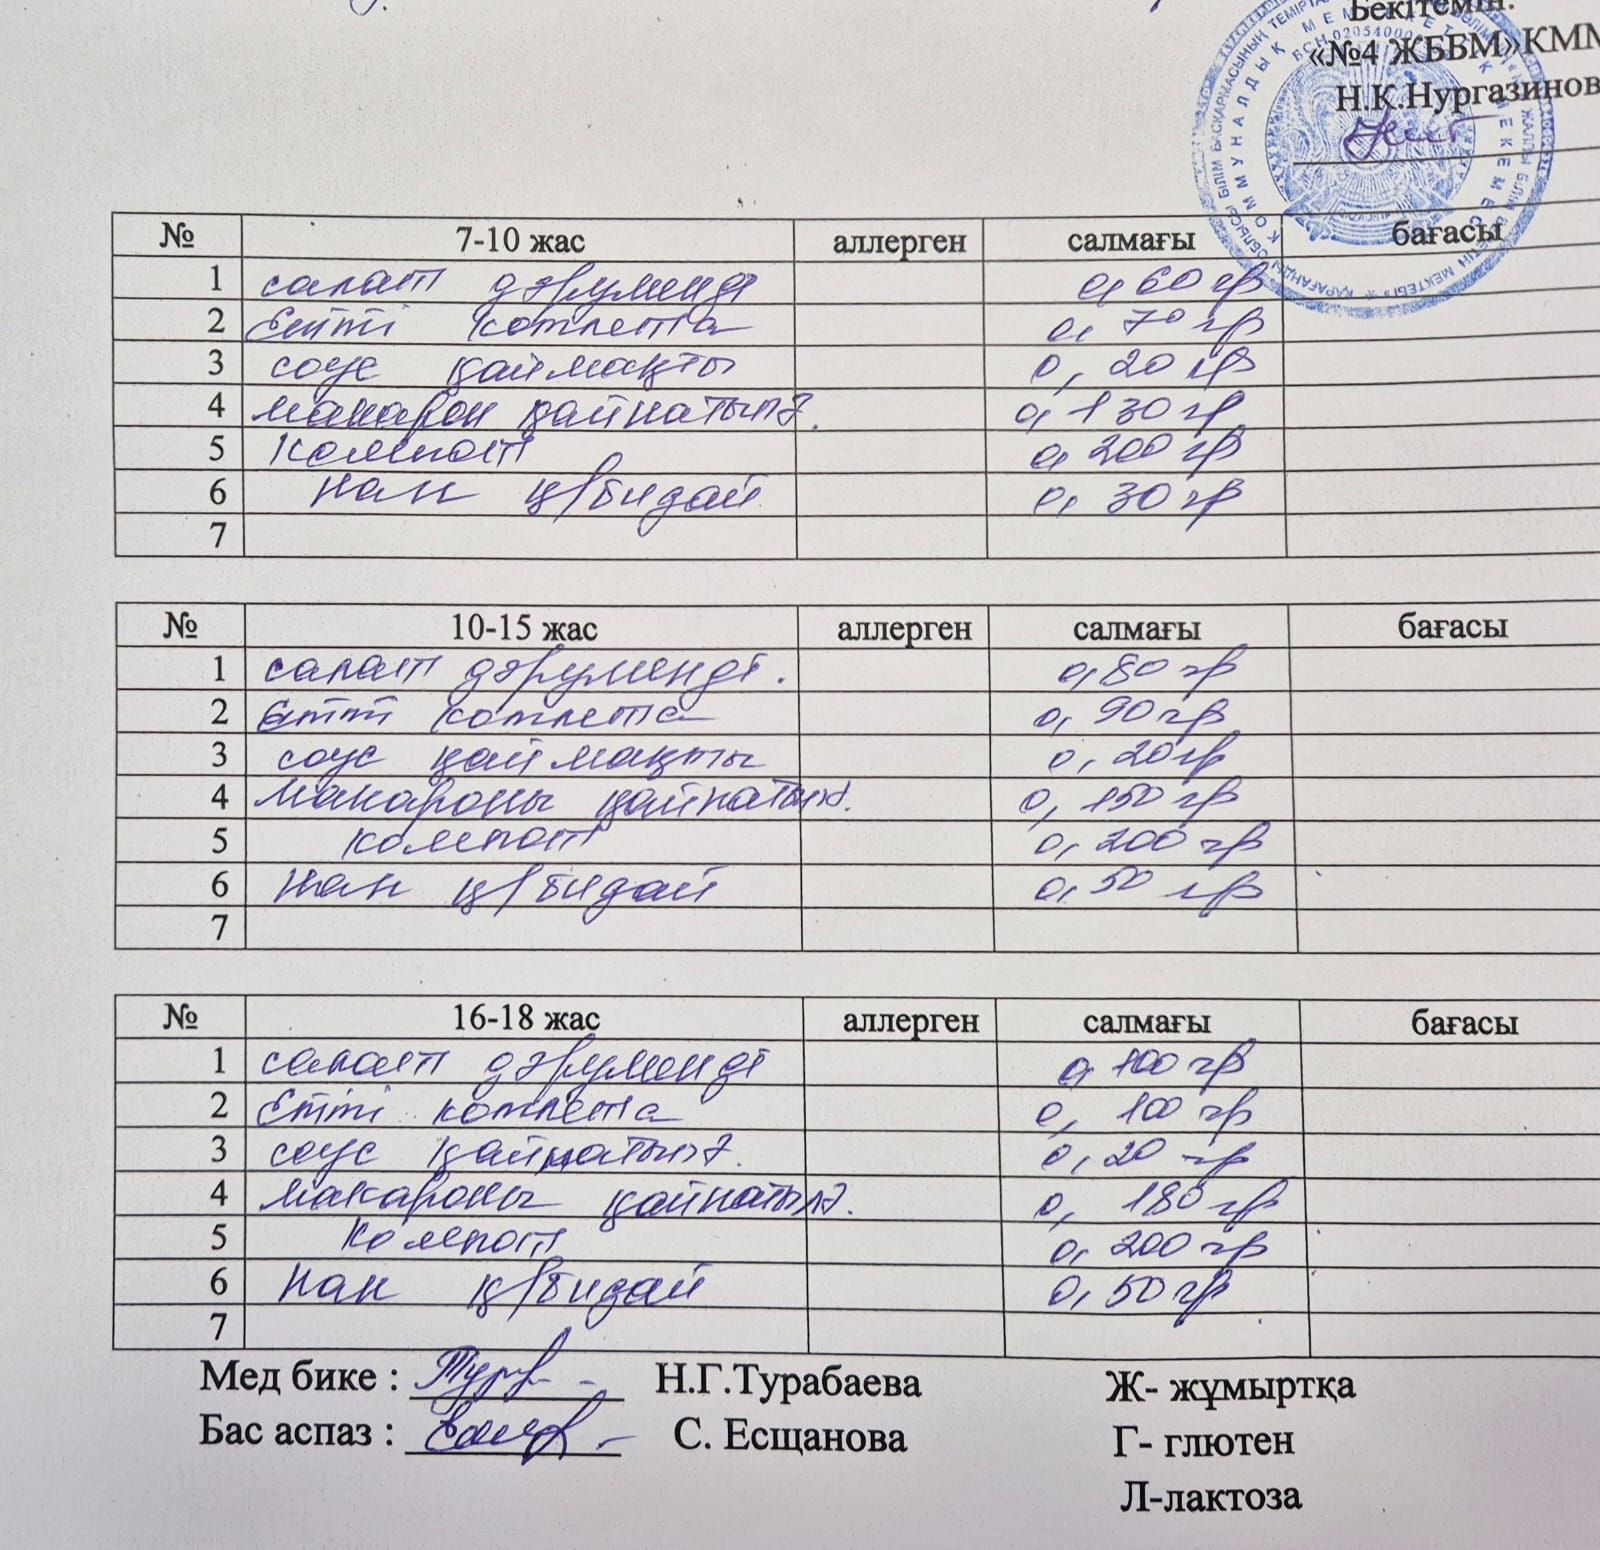 Бекітемін:
«№4 ЖББМ»КММ
Н.Қ.Нургазинов
№ 7-10 жас аллерген салмағы бағасы
1 салат дәрумендi 0,60 гр
2 Етті котлета 0,70 гр
3 соус қаймақты 0,20 гр
4 макарон қайнатылғ. 0,130 гр
5 Компот 0,200 гр
6 нан қ/бидай 0,30 гр
7
№ 10-15 жас аллерген салмағы бағасы
1 салат дәрумендi. 0,80 гр
2 Етті котлета 0,90 гр
3 соус қаймақты 0,20 гр
4 макароны қайнатылғ. 0,150 гр
5 компот 0,200 гр
6 нан қ/бидай 0,50 гр
7
№ 16-18 жас аллерген салмағы бағасы
1 салат дәрумендi 0,100 гр
2 Етті котлета 0,100 гр
3 соус қайнатылғ. 0,20 гр
4 макароны қайнатылғ. 0,180 гр
5 Компот 0,200 гр
6 нан қ/бидай 0,50 гр
7
Мед бике : Н.Г.Турабаева Ж- жұмыртқа
Бас аспаз : С. Есщанова Г- глютен
Л-лактоза